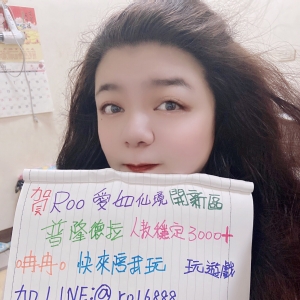 賀Roo 愛如仙境開新區
普隆德拉 人數穩定3000+
冉冉。快來陪我玩 玩遊戲
加LINE:@ro16888